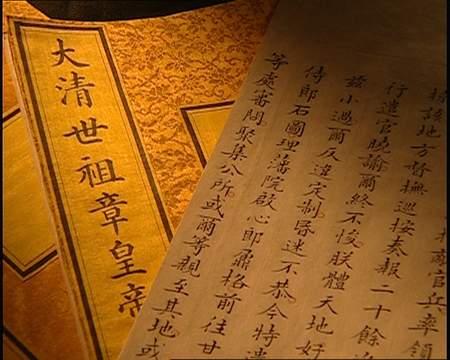 官兵率領
該地方督撫巡按奏報二十餘
行遣官曉諭爾終不悛朕體天地好
茲小過爾反違定制昏迷不恭今特遣
侍郎石圖理藩院啟心郎鼐格前往甘
等處審問聚集公所或爾等親至其地或
大清世祖章皇帝